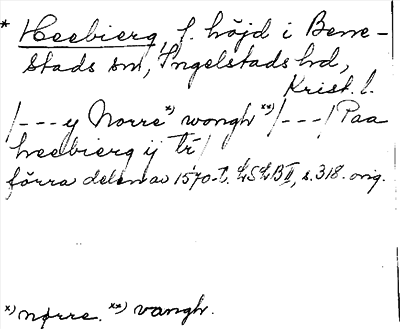 * Heebierg, f. höjd i Bene-
stads sn, Ingelstads hd,
Krist. l.
/--- y Norre *) wongh **)/---/ Paa
heebierg ij tr/
förra delen av 1570-t. LSLB II, s. 318. orig.
*) nørre. **) vangh.